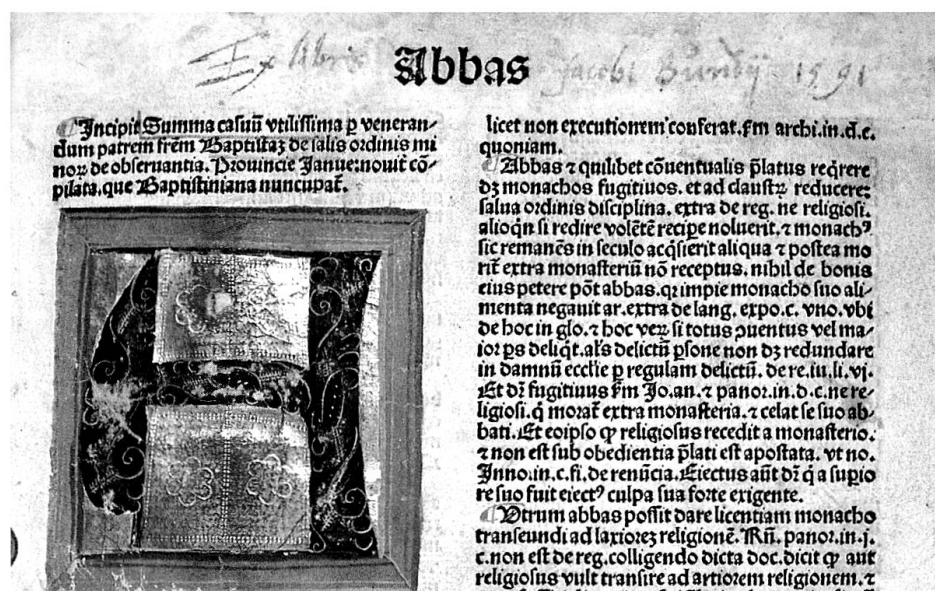 Ex libris Jacobi Bundij 1591
Abbas
Incipit Summa casuũ vtilissima ꝑ veneran⸗
dum patrem frẽm Baptistaz de salis ordinis mi
noꝝ de obseruantia. Prouincie Janue: nouit cõ⸗
pilata, que Baptistiniana nuncupat̃.
licet non executionem conferat. fm archi. in. d. c.
quoniam.
Abbas ⁊ quilibet cõuentualis p̃latus reqͥrere
dꝫ monachos fugitiuos. et ad claustꝝ reducere:
salua ordinis disciplina. extra de reg. ne religiosi.
alioqͥn si redire volẽtẽ recipe noluerit. ⁊ monachꝰ
sic remanẽs in seculo acqͥsierit aliqua ⁊ postea mo
rit̃ extra monasteriũ nõ receptus. nihil de bonis
eius petere põt abbas. qꝛ impie monacho suo ali⸗
menta negauit ar. extra de lang. expo. c. vno. vbi
de hoc in glo. ⁊ hoc veꝝ si totus ꝯuentus vel ma⸗
ioꝛ ꝑs deliqͥt. al's delictũ ꝑsone non dꝫ redundare
in damnũ ecclie ꝑ regulam delictũ. de re. iu. li. vj.
Et dꝛ̃ fugitiuus fm Jo. an. ⁊ panoꝛ. in. d. c. ne re⸗
ligiosi. q̇ morat̃ extra monasteria. ⁊ celat se suo ab⸗
bati. Et eoipso ꝙ religiosus recedit a monasterio.
⁊ non est sub obedientia p̃lati est apostata. vt no.
Inno. in. c. fi. de renũcia. Eiectus aũt dꝛ̃ q̇ a supio
re suo fuit eiectꝰ culpa sua forte exigente.
Vtrum abbas possit dare licentiam monacho
transeundi ad laxiorez religionẽ. Rñ. panoꝛ. in. j.
c. non est de reg. colligendo dicta doc. dicit ꝙ aut
religiosus vult transire ad artiorem religionem. ⁊